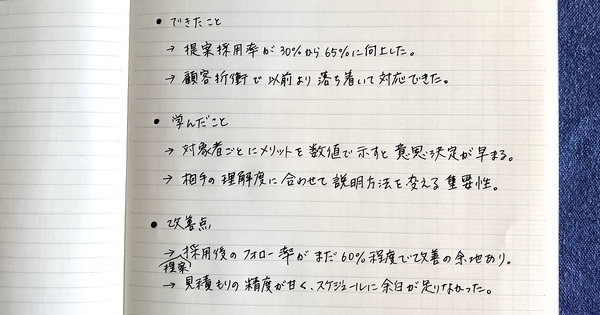 ● できたこと
→ 提案採用率が30%から65%に向上した。
→ 顧客折衝で以前より落ち着いて対応できた。
● 学んだこと
→ 対象者ごとにメリットを数値で示すと意思決定が早まる。
→ 相手の理解度に合わせて説明方法を変える重要性。
● 改善点
→ 採用後のフォロー率がまだ60%程度で改善の余地あり。
提案
→ 見積もりの精度が甘く、スケジュールに余白が足りなかった。